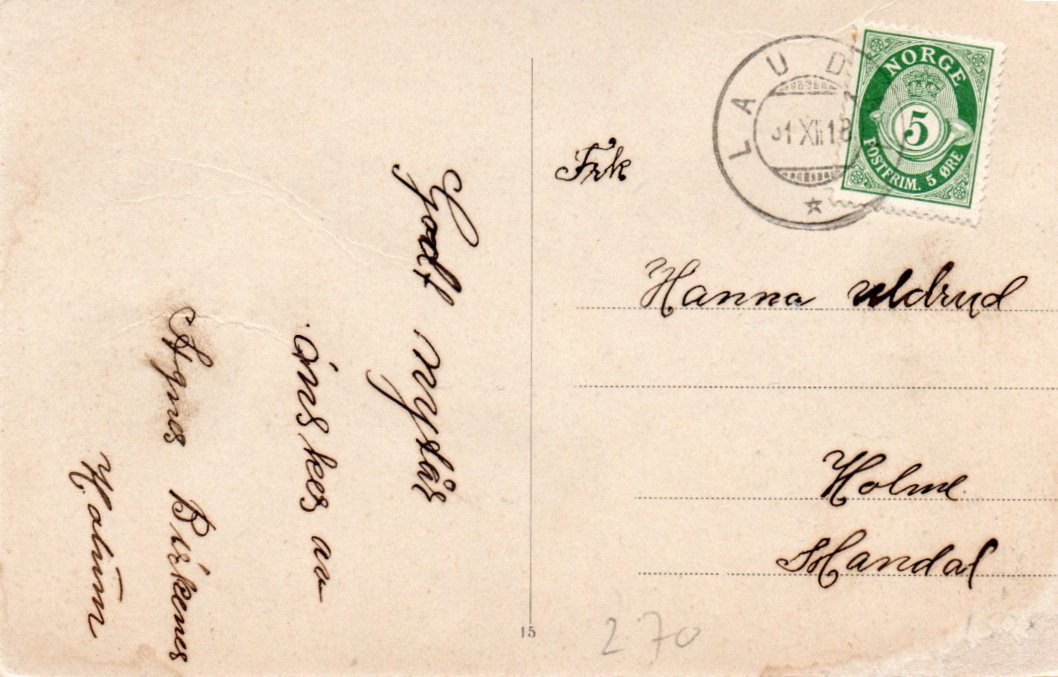 Godt nyår
önskes av
Agnes Birkenes
Holum
LAUD
31 XII 18
NORGE
5
POSTFRIM. 5 ØRE
Frk
Hanna Uldrud
Holme
Mandal
15
270